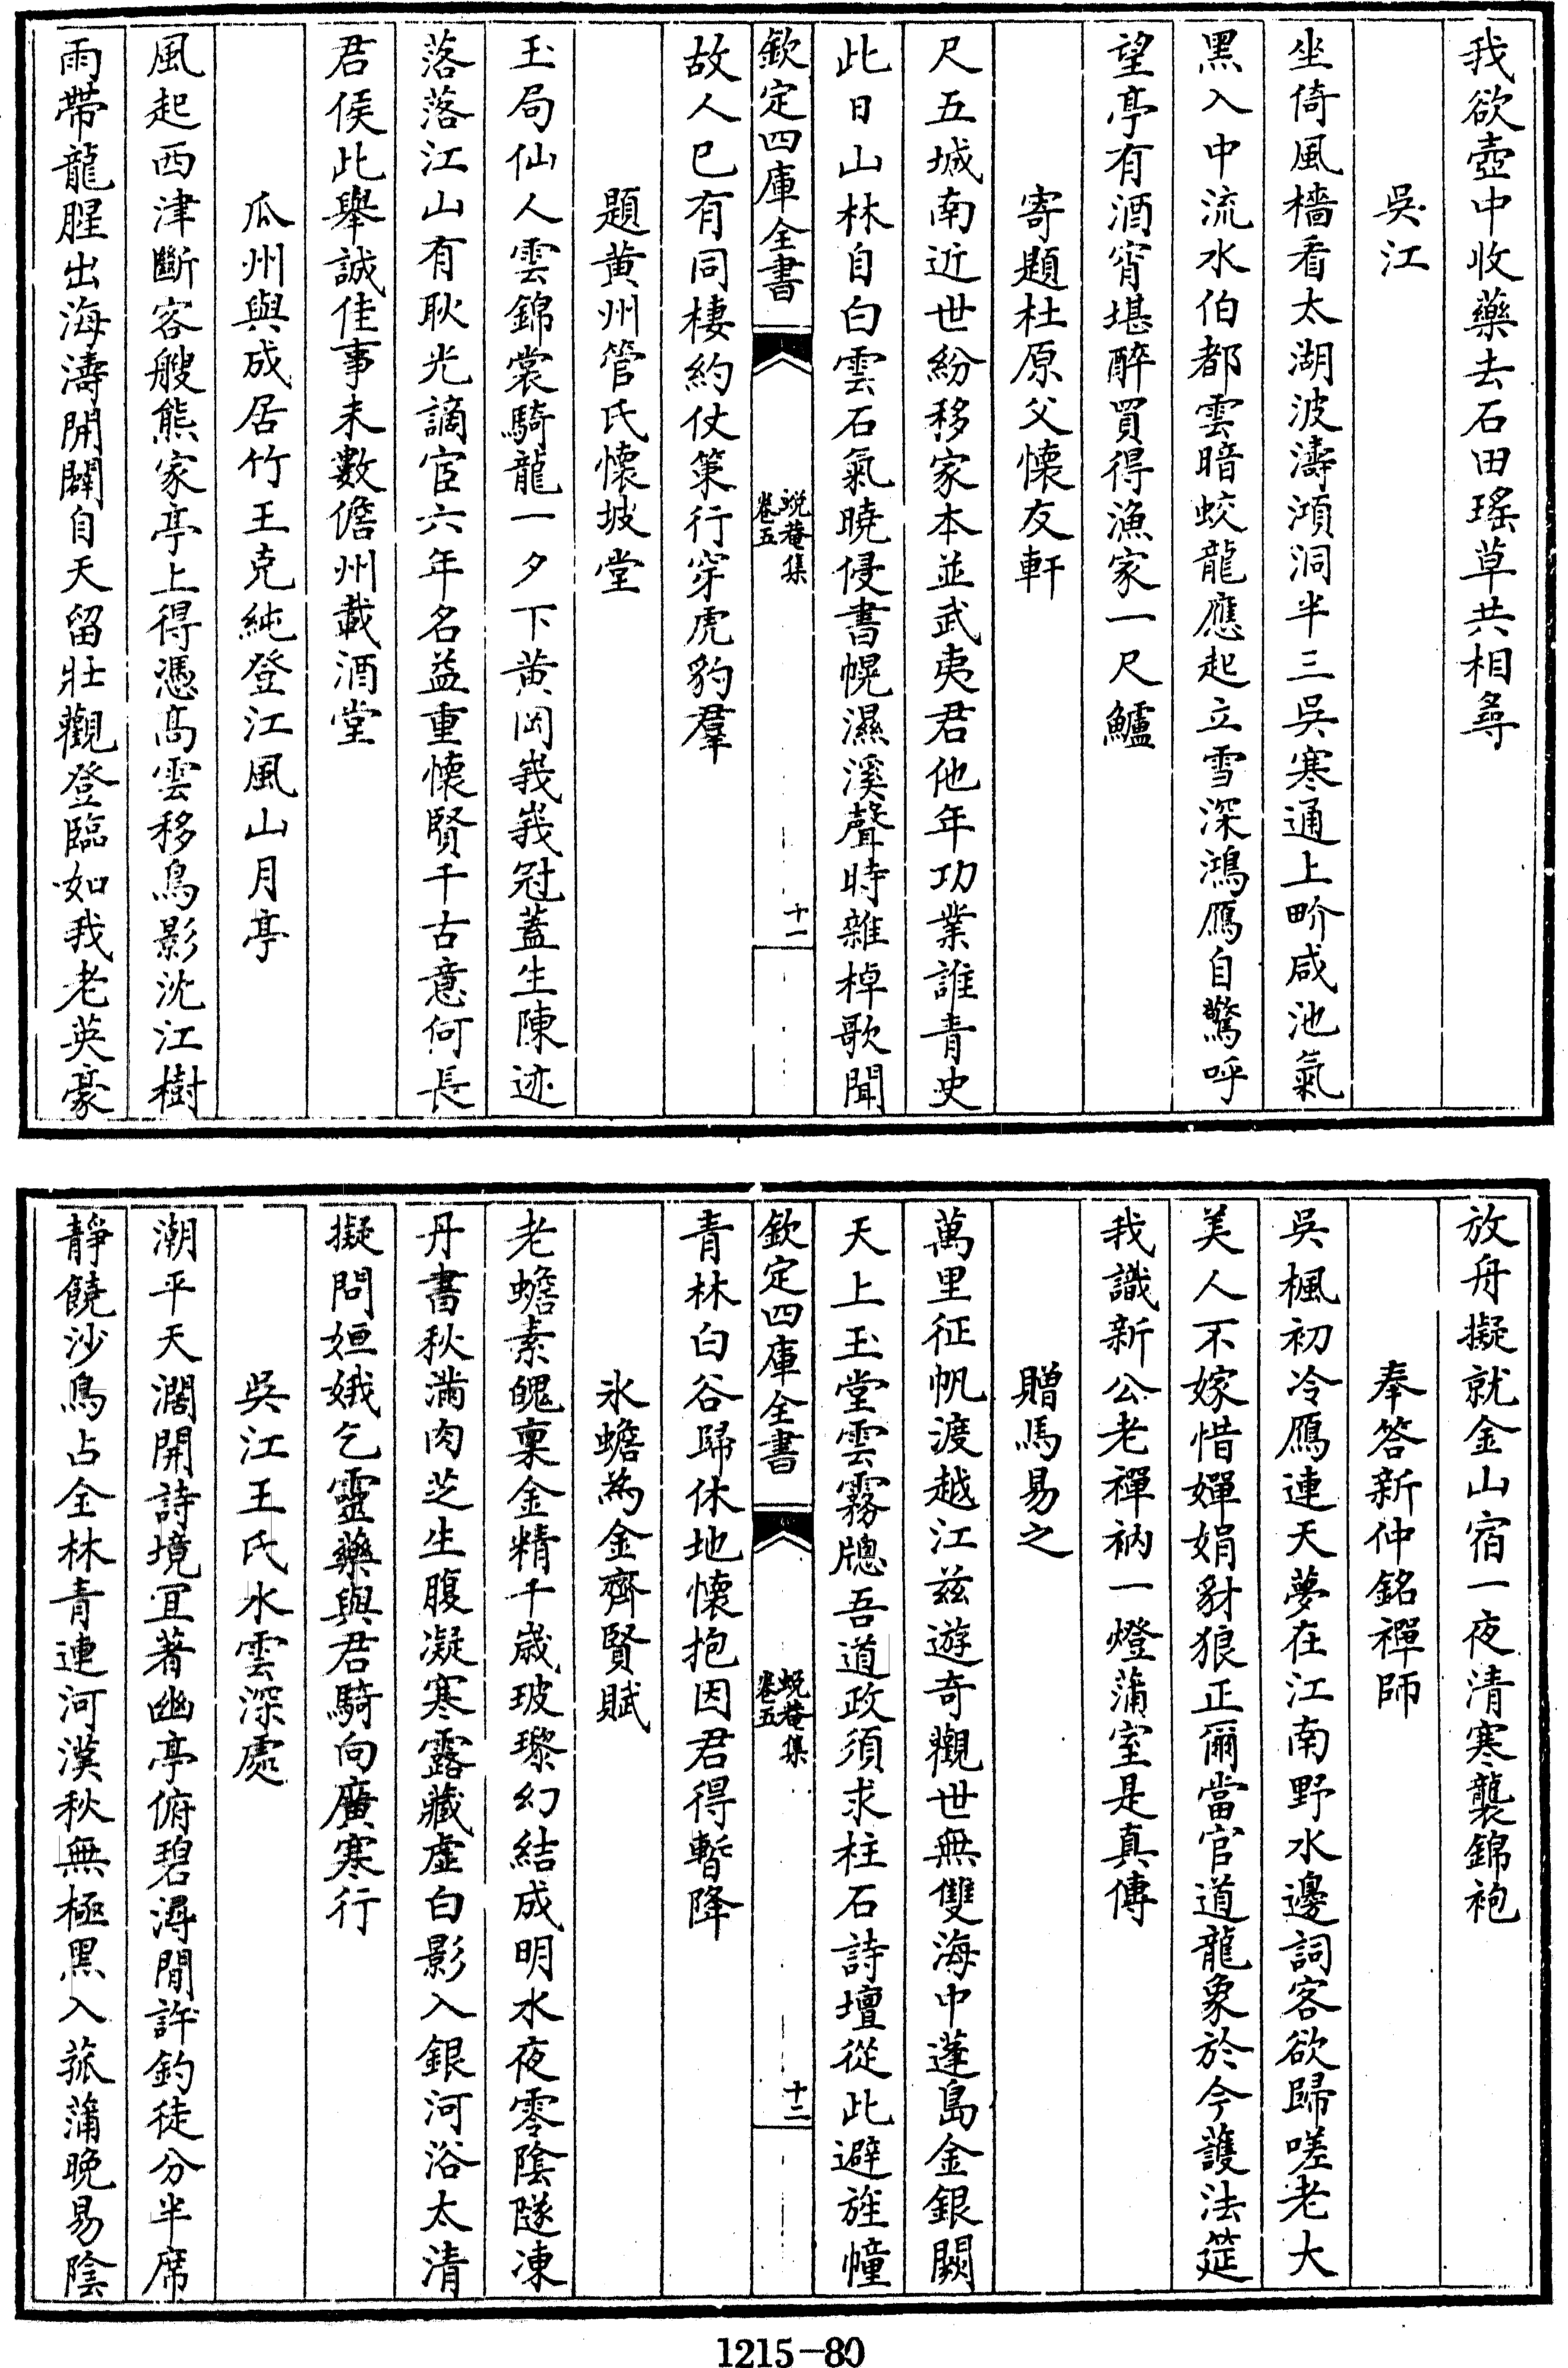 我欲壺中收藥去石田瑤草共相尋
吳江
坐倚風檣看太湖波濤澒洞半三吳寒通上畍咸池氣
黑入中流水伯都雲暗蛟龍應起立雪深鴻鴈自驚呼
望亭有酒宵堪醉買得漁家一尺鱸
寄題杜原父懷友軒
尺五城南近世紛移家本並武夷君他年功業誰青史
此日山林自白雲石氣曉侵書幌濕溪聲時雜棹歌聞
欽定四庫全書
蛻菴集
卷五
十一
故人已有同棲約仗策行穿虎豹羣
題黄州管氏懷坡堂
玉局仙人雲錦裳騎龍一夕下黄岡峩峩冠蓋生陳迹
落落江山有耿光謫宦六年名益重懷賢千古意何長
君侯此舉誠佳事未數儋州載酒堂
瓜州與成居竹王克純登江風山月亭
風起西津斷客艘熊家亭上得憑高雲移鳥影沈江樹
雨帶龍腥出海濤開闢自天留壯觀登臨如我老英豪
放舟擬就金山宿一夜清寒襲錦袍
奉答新仲銘禪師
吳楓初冷鴈連天夢在江南野水邊詞客欲歸嗟老大
美人不嫁惜嬋娟豺狼正爾當官道龍象於今護法筵
我識新公老禪衲一燈蒲室是真傳
贈馬易之
萬里征帆渡越江兹遊奇觀世無雙海中蓬島金銀闕
天上玉堂雲霧牕吾道政須求柱石詩壇從此避旌幢
欽定四庫全書
蛻菴集
卷五
十二
青林白谷歸休地懷抱因君得暫降
氷蟾為金齊賢賦
老蟾素魄稟金精千歲玻瓈幻結成明水夜零陰隧凍
丹書秋滿肉芝生腹凝寒露藏虛白影入銀河浴太清
擬問姮娥乞靈藥與君騎向廣寒行
吳江王氏水雲深處
潮平天濶開詩境宜著幽亭俯碧潯閒許釣徒分半席
靜饒沙鳥占全林青連河漢秋無極黑入菰蒲晚易陰
1215-80